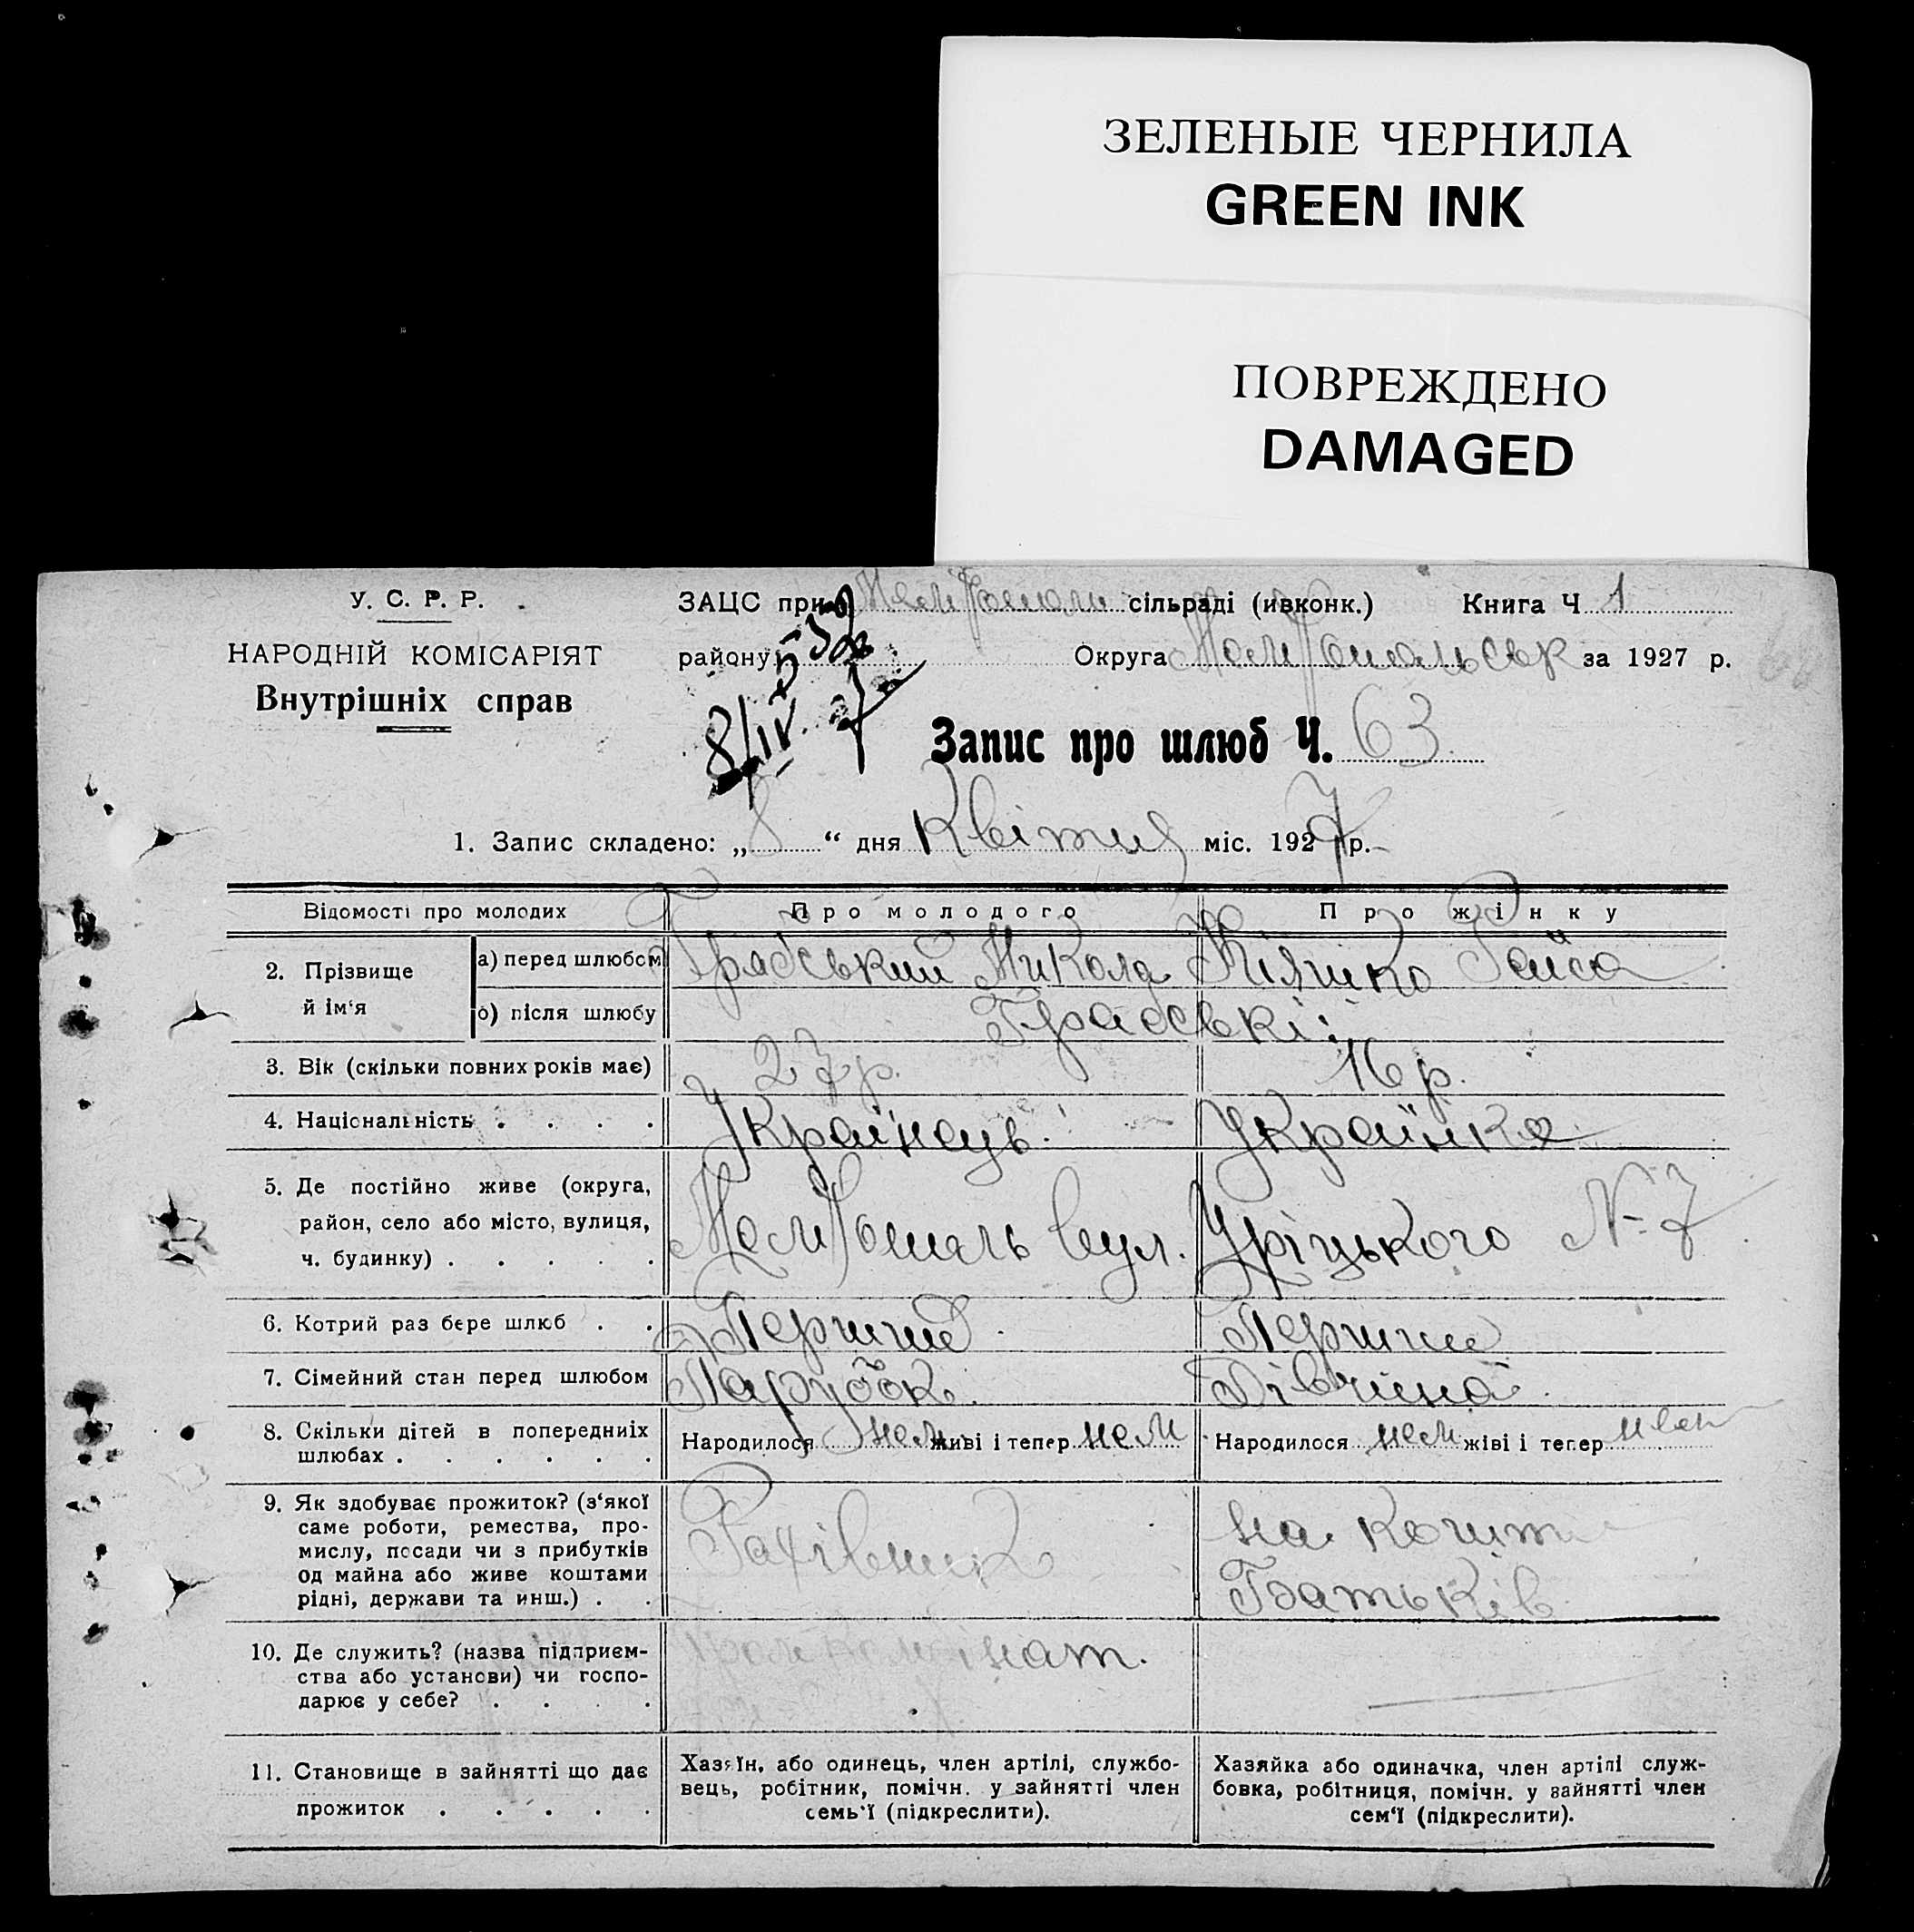 ЗЕЛЕНЫЕ ЧЕРНИЛА
GREEN INK
ПОВРЕЖДЕНО
DAMAGED
У. С. Р. Р.
НАРОДНІЙ КОМІСАРІЯТ
Внутрішніх справ
ЗАЦС при сільраді (ивконк.) Книга Ч 1
району Округа за 1927 р.
8/IV
Запис про шлюб Ч. 63
1. Запис складено: „ 8 “ дня Квітня міс. 1927 р.
Відомості про молодих Про молодого Про жінку
2. Прізвище й ім‘я
а) перед шлюбом Грабський Микола Кіяшко Раїса
б) після шлюбу Грабські
3. Вік (скільки повних років має) 27 р. 16 р.
4. Національність . . . . Українець. Українка
5. Де постійно живе (округа,
район, село або місто, вулиця,
ч. будинку) . . . . .
вул. Уріцького № 7
6. Котрий раз бере шлюб . . Перший Перший
7. Сімейний стан перед шлюбом Парубок. Дівчина.
8. Скільки дітей в попередніх
шлюбах . . . . . .
Народилося нем живі і тепер нем Народилося нем жіві і тепер нем
9. Як здобуває прожиток? (з‘якої
саме роботи, ремества, про-
мислу, посади чи з прибутків
од майна або живе коштами
рідні, держави та инш.) . .
Рахівник
на кошт
Батьків
10. Де служить? (назва підприєм-
ства або установи) чи госпо-
дарює у себе? . . . .
11. Становище в зайнятті що дає
прожиток . . . . .
Хазяїн, або одинець, член артілі, службо-
вець, робітник, помічн. у зайнятті член
семь‘ї (підкреслити).
Хазяйка або одиначка, член артілі служ-
бовка, робітниця, помічн. у зайнятті член
сем‘ї (підкреслити).